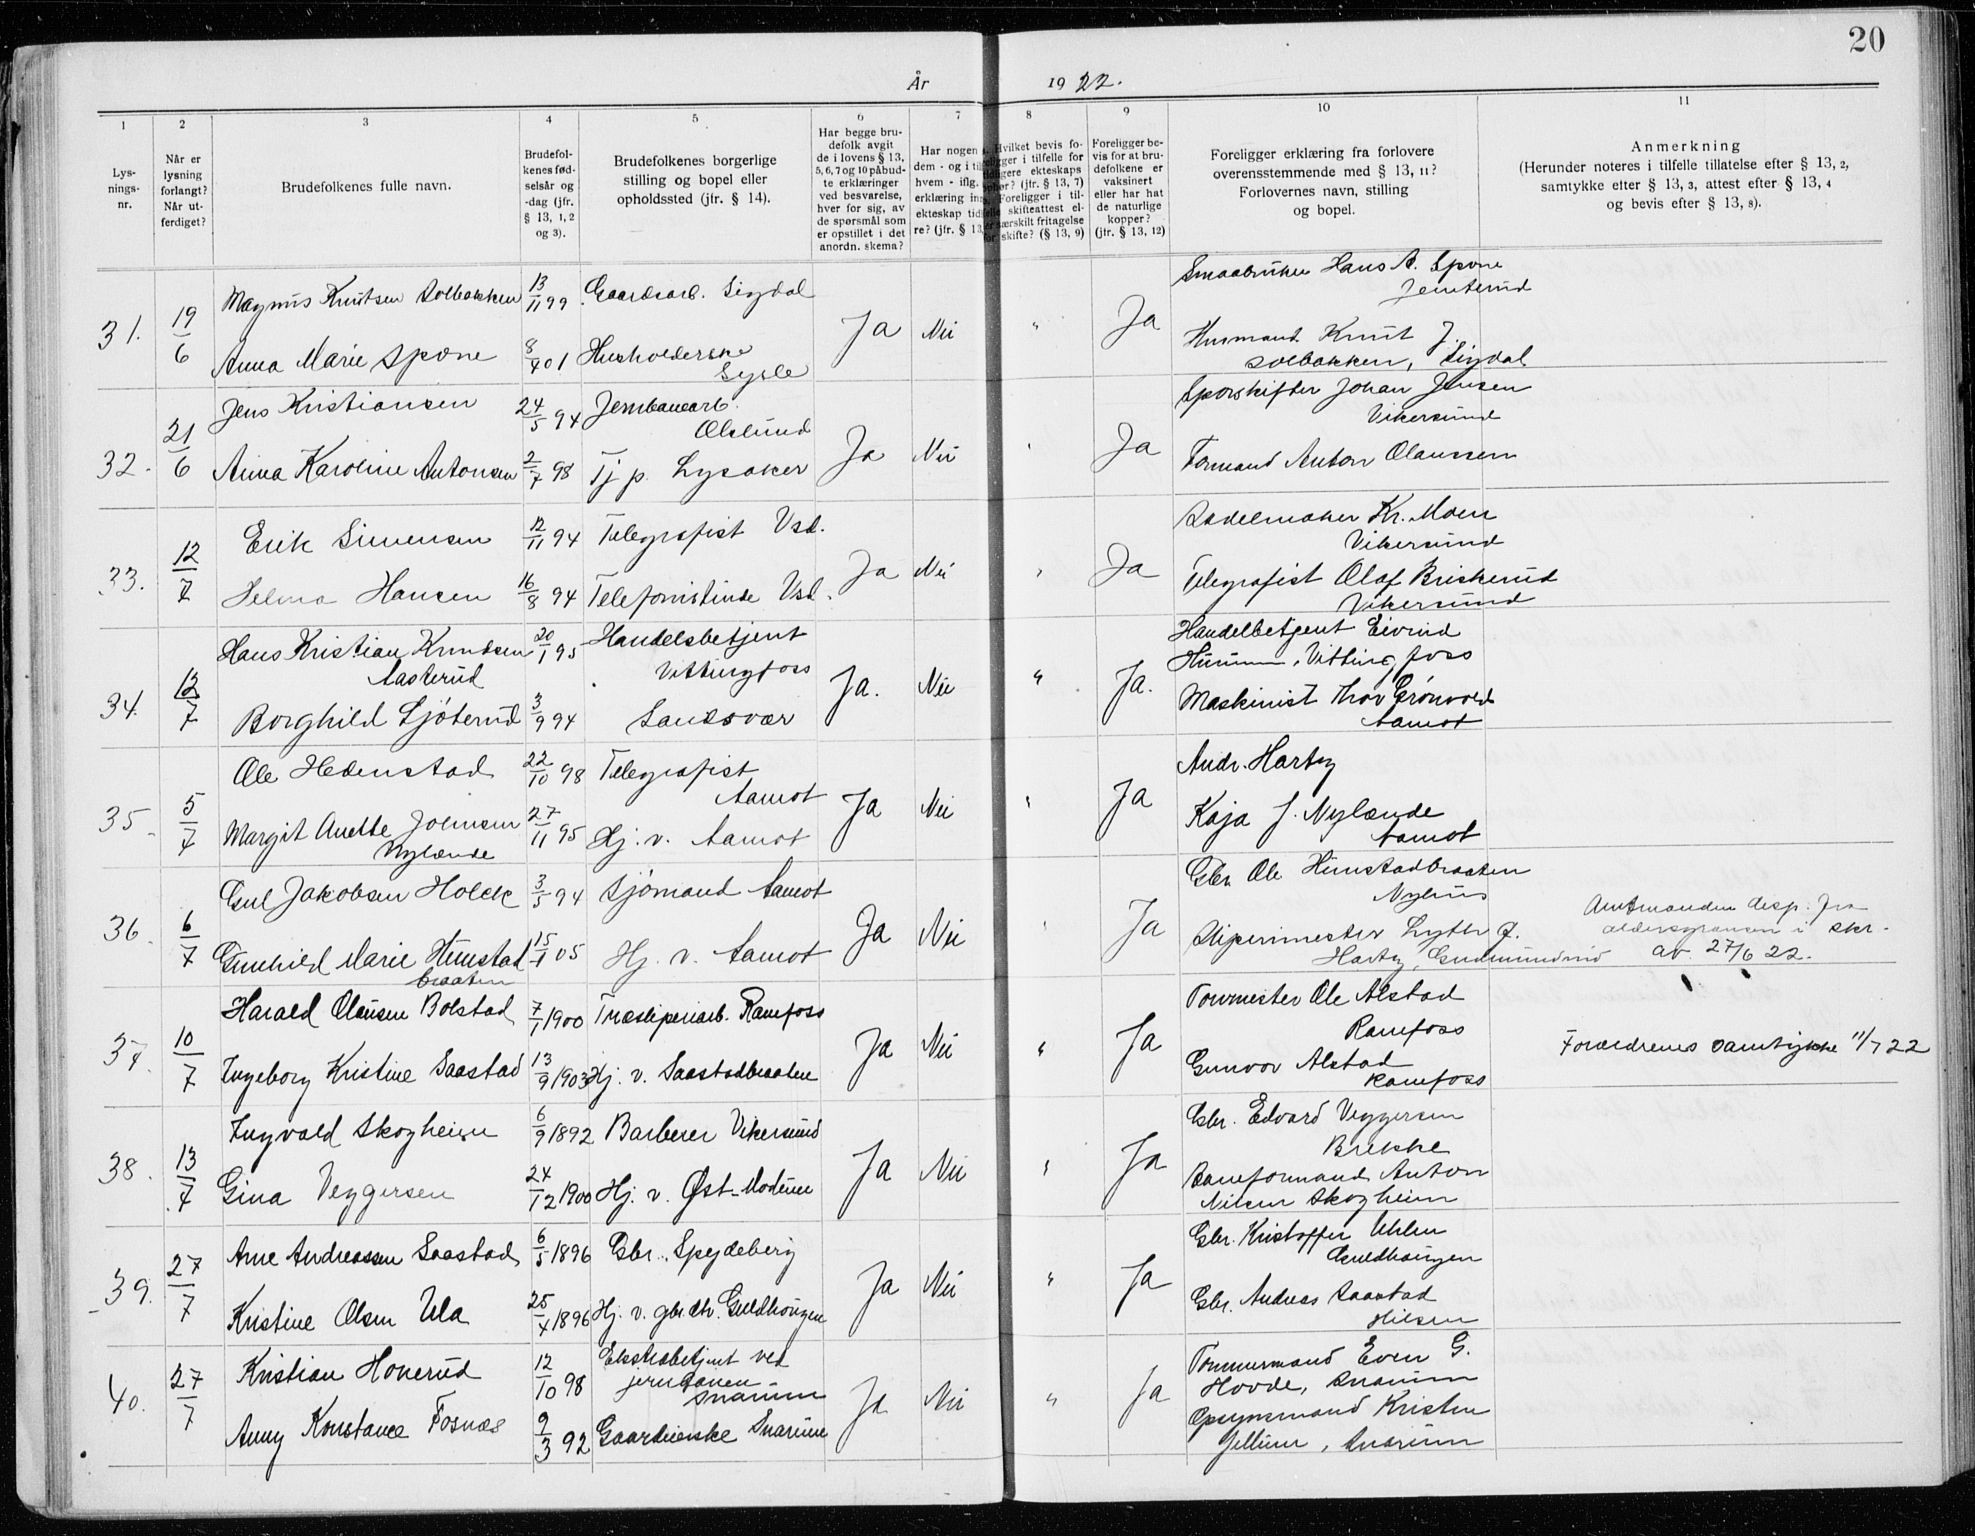 20
År 1922.
1 2 3 4 5 6 7 8 9 10 11
Lys-
nings-
nr.
Når er
lysning
forlangt?
Når ut-
ferdiget?
Brudefolkenes fulle navn.
Brudefol-
kenes fød-
selsår og
-dag (jfr.
§ 13, 1, 2
og 3).
Brudefolkenes borgerlige
stilling og bopel eller
opholdssted (jfr. § 14).
Har begge bru-
defolk avgit
de i lovens § 13,
5, 6, 7 og 10 påbud-
te erklæringer
ved besvarelse,
hver for sig, av
de spørsmål som
er opstillet i det
anordn. skema?
Har nogen
dem - og i
hvem - iflg.
erklæring
ekteskap tid
re? (jfr. § 13,
Hvilket bevis fo-
ligger i tilfelle for
ekteskaps
(jfr. § 13, 7)
Foreligger i til-
skifteattest el-
særskilt fritagelse
for skifte? (§ 13, 9)
Foreligger be-
vis for at bru-
defolkene er
vaksinert
eller har hat
de naturlige
kopper?
(jfr. § 13, 12)
Foreligger erklæring fra forlovere
overensstemmende med § 13, 11?
Forlovernes navn, stilling
og bopel.
Anmerkning
(Herunder noteres i tilfelle tillatelse efter § 13, 2,
samtykke efter § 13, 3, attest efter § 13, 4
og bevis efter § 13, 8).
31. 19/6 Magnus Knutsen Solbakken 13/11 99. Gaardsarb. Sigdal Ja Nei " Ja Smaabruker Hans A. Spone
Jemterud
Anna Marie Spone 8/4 01 Husholderske
Sysle
Husmand Knut J.
Solbakken, Sigdal
32. 21/6 Jens Kristiansen 24/5 94 Jernbanearb.
Ja Nei " Ja Sporskifter Johan Jensen
Vikersund
Anna Karoline Antonsen 2/7 98 Tj. p. Lysaker
Formand Anton Olaussen
33. 12/7 Erik Simensen 12/11 94 Telegrafist Vsd. Ja Nei " Ja Sadelmaker Kr. Moen
Vikersund
Helma Hansen 16/8 94 Telefonistinde Vsd.
Telegrafist Olaf Briskerud
Vikersund
34. 12/7 Hans Kristian Knudsen
Aasterud 20/1 95 Handelsbetjent
Vittingfoss Ja. Nei " Ja. Handelbetjent Eivind
Vittingfoss
Borghild Sjøterud 3/9 94 Sandsvær
Maskinist Thov Grönvold
Aamot
35 5/7 Ole Hedenstad 22/10 98 Telegrafist
Aamot Ja Nei " Ja Andr. Hartz
Margit Anette Johnsen
Nylænde 27/11 95 Hj. v. Aamot
Kaja J. Nylænde
Aamot
36. 6/7 Gul Jakobsen Holck 3/5 94 Sjömand Aamot Ja Nei " Ja Gbr. Ole Hunstadbraaten
Gunhild Marie Hunstad
braaten 15/1 05 Hj. v. Aamot
Slipermester
Amtmanden disp. fra
aldersgrænsen i skr.
av 27/6 22.
37. 10/7 Harald Olausen Bolstad 7/1 1900 Træsliperiarb. Ramfoss Ja Nei " Ja Tovmester Ole Alstad
Ramfoss
Ingeborg Kristine Saastad 13/9 1903 Hj. v. Saastadbraaten
Gunvor Alstad
Ramfoss
Forældrenes samtykke 11/7 22
38. 13/7 Ingvald Skogheim 6/9 1892 Barberer Vikersund Ja Nei " Ja Gbr. Edvard Veggersen
Brekke
Gina Veggersen 24/12 1900 Hj. v. Øst-Modum
Baneformand Anton
Nilsen Skogheim
39. 27/7 Arne Andreassen Saastad 6/5 1896 Gbr. Spydeberg Ja Nei " Ja Gbr. Kristoffer Uhlen
Guldhaugen
Kristine Olsen Ula 25/4 1896 Hj. v. gbr.dtr. Guldhaugen
Gbr. Andreas Saastad
Hilsen
40. 27/7 Kristian Honerud 12/10 98 Ekstrabetjent ved
jernbanen
Snarum Ja Nei " Ja Tömmermand Even G.
Hovde, Snarum
Anny Konstance Fosnæs 9/3 92 Gaardeierske Snarum
Opsynsmand Kristen
Jellum, Snarum